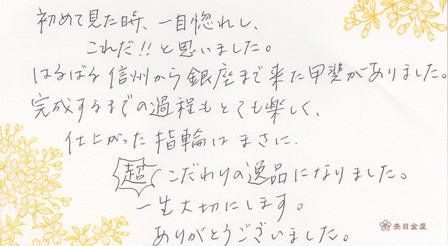 初めて見た時、一目惚れし、
これだ!!と思いました。
はるばる信州から銀座まで来た甲斐がありました。
完成するまでの過程もとても楽しく、
仕上がった指輪はまさに、
超こだわりの逸品になりました。
一生大切にします。
ありがとうございました。
杢目金屋